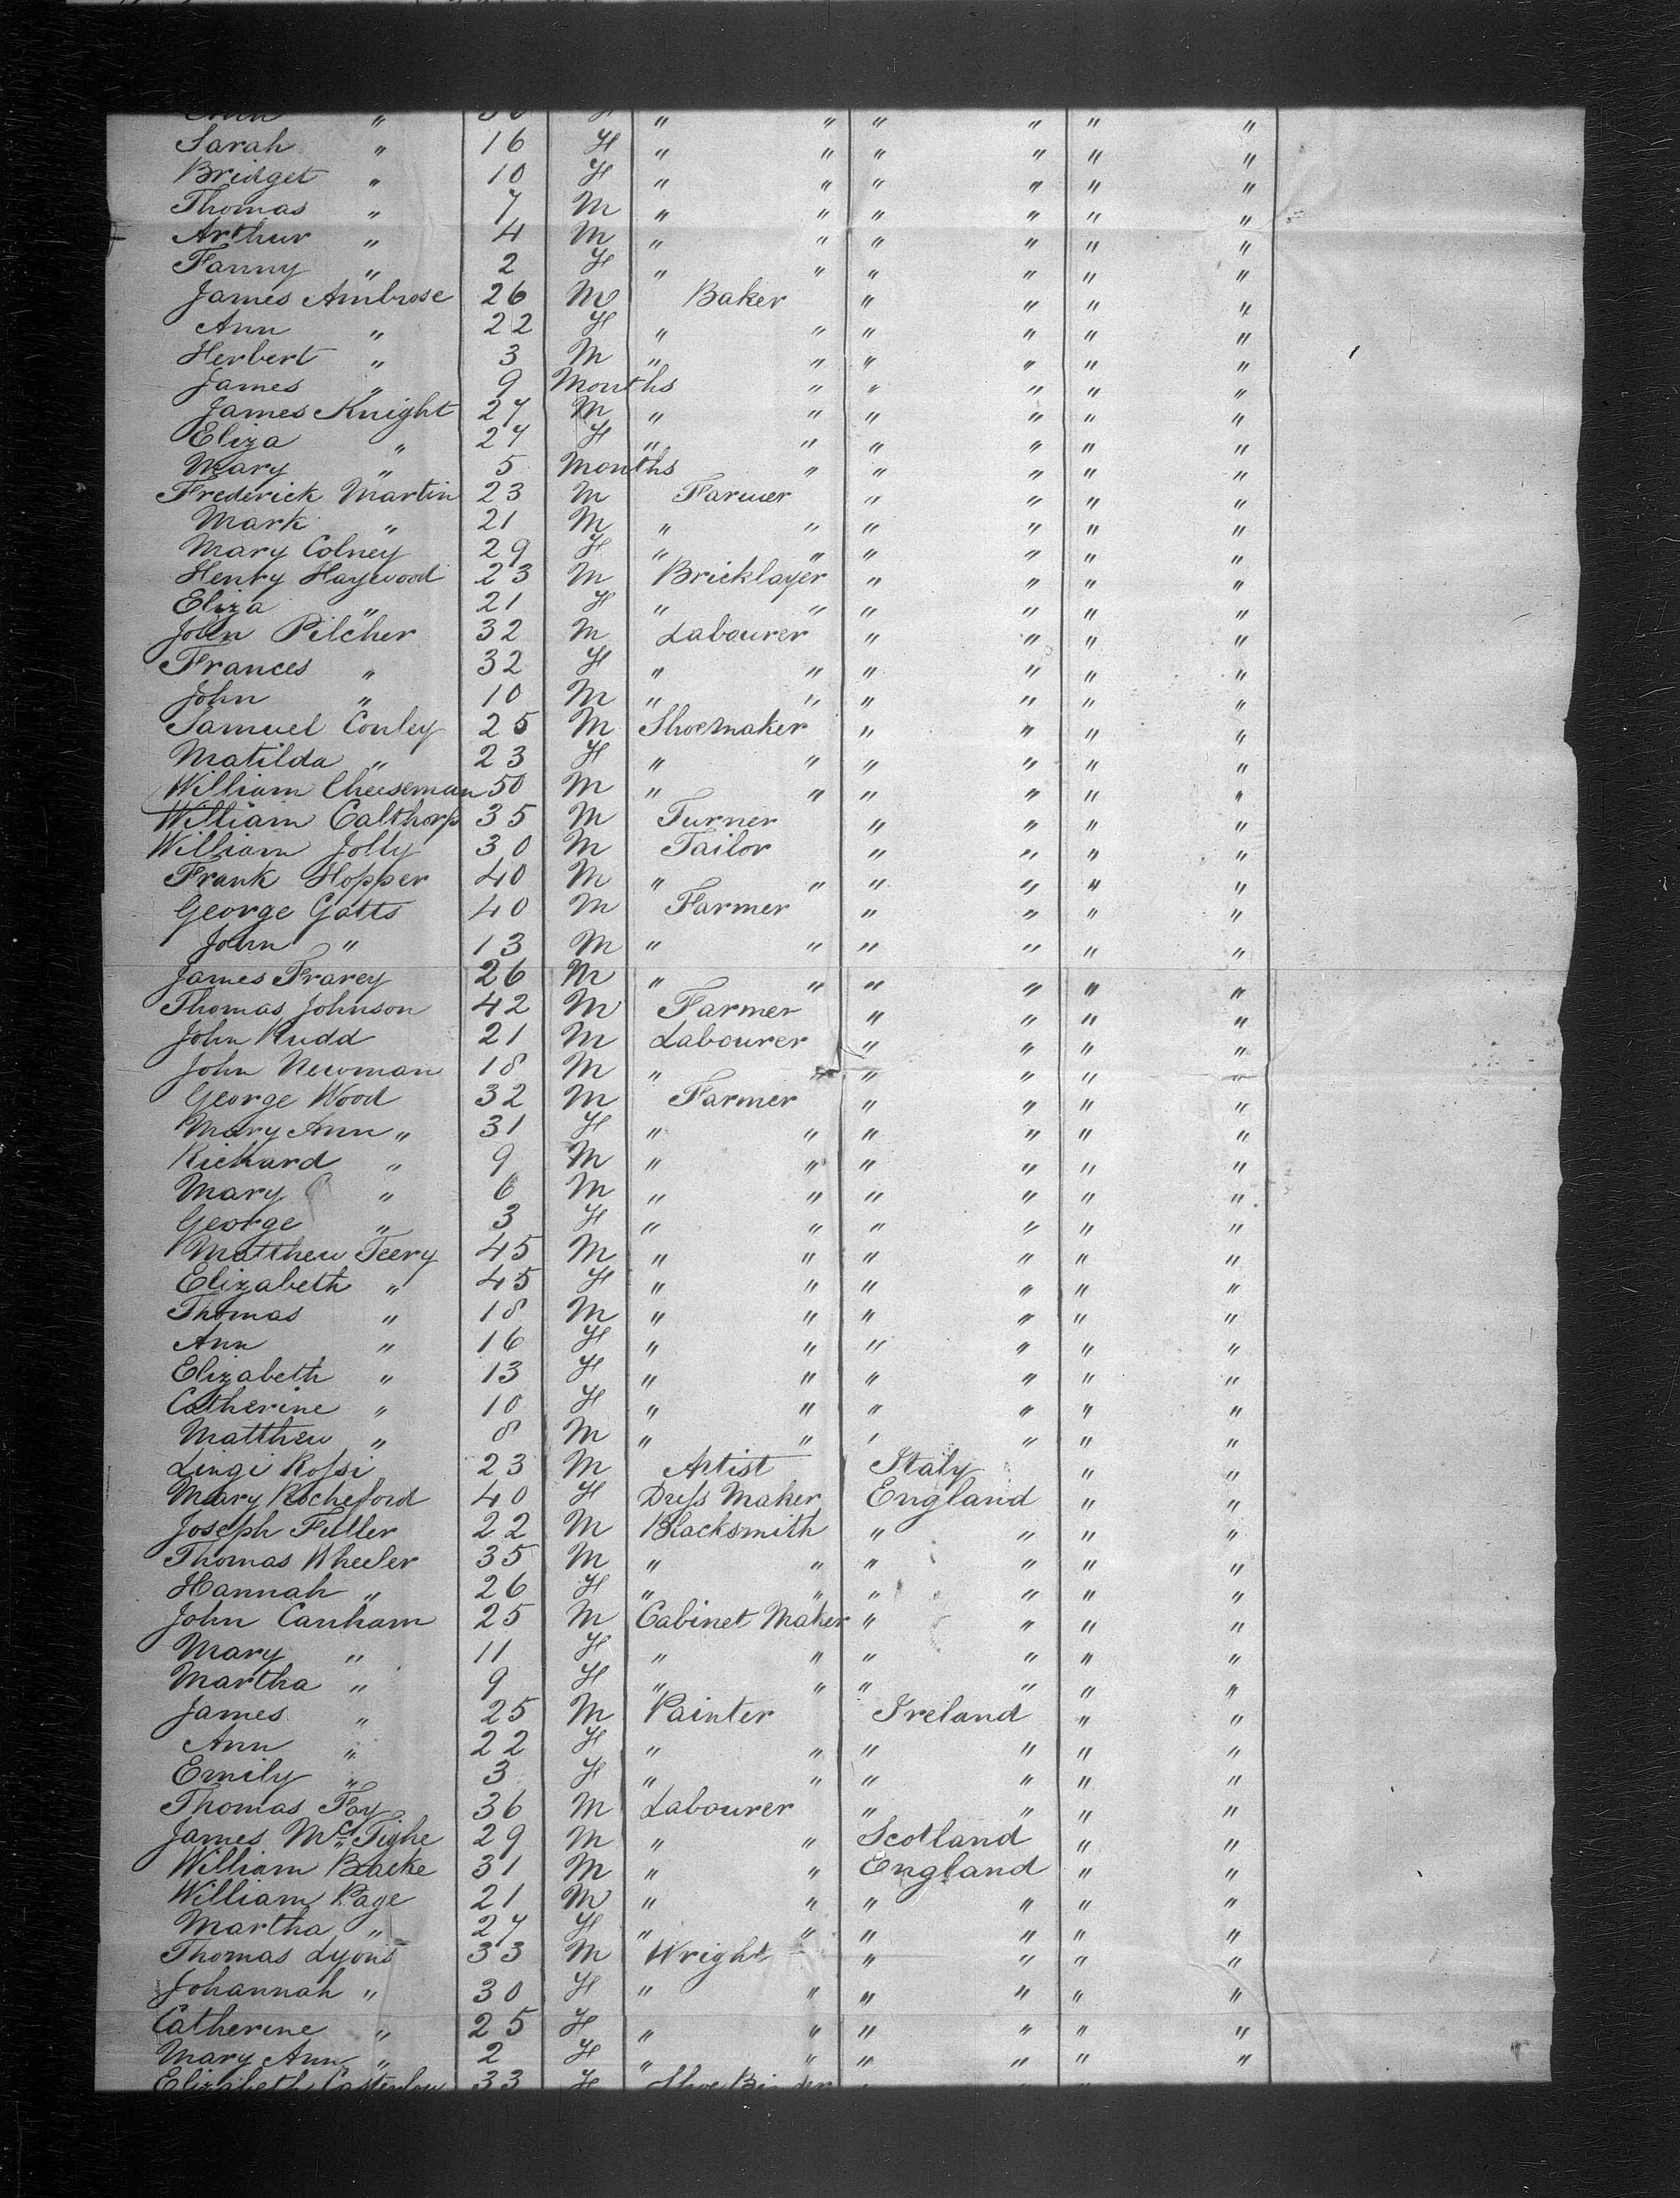 Ann " 30 F " " " " " "
Sarah " 16 F " " " " " "
Bridget " 10 F " " " " " "
Thomas " 7 M " " " " " "
Arthur " 4 M " " " " " "
Fanny " 2 F " " " " " "
James Ambrose 26 M Baker " " " "
Ann " 22 F " " " " " "
Herbert " 3 M " " " " " "
James " 9 Months " " " " "
James Knight 27 M " " " " " "
Eliza " 27 F " " " " " "
Mary " 5 Months " " " " "
Frederick Martin 23 M Farmer " " " "
Mark " 21 M " " " " " "
Mary Colney 29 F " " " " " "
Henry Haywood 23 M Bricklayer " " " "
Eliza " 21 F " " " " " "
John Pilcher 32 M Labourer " " " "
Frances " 32 F " " " " " "
John " 10 M " " " " " "
Samuel Conley 25 M Shoemaker " " " "
Matilda " 23 F " " " " " "
William Cheeseman 50 M " " " " " "
William Calthorp 35 M Turner " " " "
William Jolly 30 M Tailor " " " "
Frank Hopper 40 M " " " " " "
George Gatts 40 M Farmer " " " "
John " 13 M " " " " " "
James Frarey 26 M " " " " " "
Thomas Johnson 42 M Farmer " " " "
John Rudd 21 M Labourer " " " "
John Newman 18 M " " " " " "
George Wood 32 M Farmer " " " "
Mary Ann " 31 F " " " " " "
Richard " 9 M " " " " " "
Mary " 6 M " " " " " "
George " 3 F " " " " " "
Matthew Teery 45 M " " " " " "
Elizabeth " 45 F " " " " " "
Thomas " 18 M " " " " " "
Ann " 16 F " " " " " "
Elizabeth " 13 F " " " " " "
Catherine " 10 F " " " " " "
Matthew " 8 M " " " " " "
Lingi Rossi 23 M Artist Italy " "
Mary Rocheford 40 F Dress Maker England " "
Joseph Fuller 22 M Blacksmith " " " "
Thomas Wheeler 35 M " " " " " "
Hannah " 26 F " " " " " "
John Canham 25 M Cabinet Maker " " " "
Mary " 11 F " " " " " "
Martha " 9 F " " " " " "
James " 25 M Painter Ireland " "
Ann " 22 F " " " " " "
Emily " 3 F " " " " " "
Thomas Fay 36 M Labourer " " " "
James McTighe 29 M " " Scotland " "
William 31 M " " England " "
William Page 21 M " " " " " "
Martha " 27 F " " " " " "
Thomas Lyons 33 M Wright " " " "
Johannah " 30 F " " " " " "
Catherine " 25 F " " " " " "
Mary Ann " 2 F " " " " " "
Elizabeth 33 F Shoe Binder